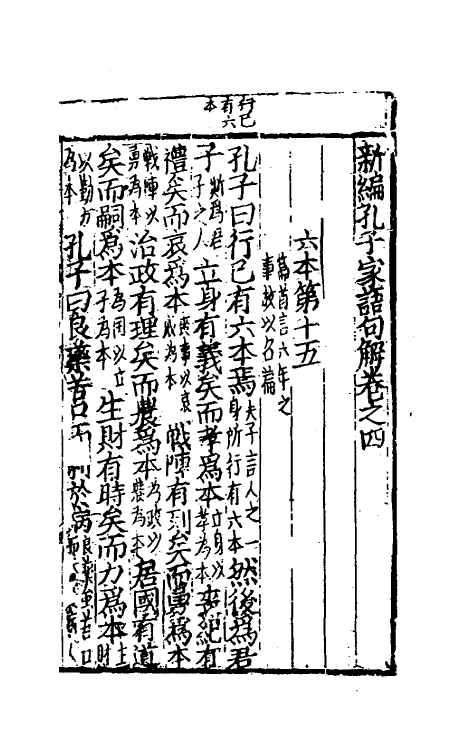 行己
有六
本
新編孔子家語句解卷之四
六本第十五
篇首言六本之
事故以名篇
孔子曰行己有六本焉夫子言人之一身所行有六本然後爲君
子斯爲君子之人立身有義矣而孝爲本立身以孝爲本喪紀有
禮矣而哀爲本喪事以哀戚爲本戰陣有列矣而勇爲本
戰陣以勇爲本治政有理矣而農爲本爲政以農爲本居國有道
矣而嗣爲本爲國以立子爲本生財有時矣而力爲本生財
以勤力爲本孔子曰良藥苦口而利於病良藥雖苦口